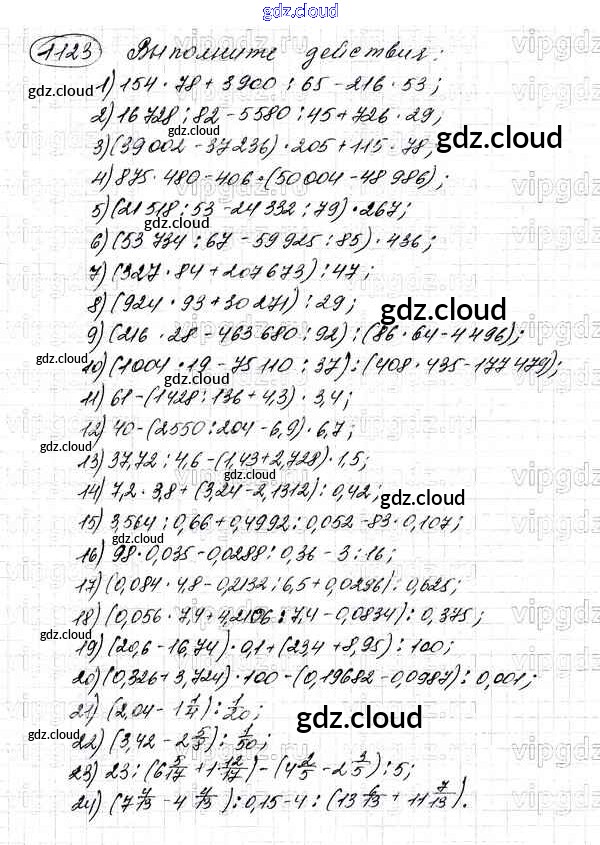 gdz.cloud
1123 Выполните действия:
1) 154 · 78 + 3900 : 65 - 216 · 53;
gdz.cloud
2) 16 728 : 82 - 5580 : 45 + 726 · 29;
gdz.cloud
3) (39 002 - 37 236) · 205 + 115 · 78;
gdz.cloud
4) 875 · 480 - 406 · (50 004 - 48 986);
gdz.cloud
5) (21 518 : 53 - 24 332 : 79) · 267;
gdz.cloud
6) (53 734 : 67 - 59 925 : 85) · 436;
7) (327 · 84 + 207 673) : 47;
gdz.cloud
8) (924 · 93 + 30 271) : 29;
gdz.cloud
9) (216 · 28 - 463 680 : 92) : (86 · 64 - 4 496);
gdz.cloud
10) (1004 · 19 - 75 110 : 37) : (408 · 435 - 177 479);
gdz.cloud
11) 61 - (1428 : 136 + 4,3) · 3,4;
12) 40 - (2550 : 204 - 6,9) · 6,7;
gdz.cloud
13) 37,72 : 4,6 - (1,43 + 2,728) · 1,5;
14) 7,2 · 3,8 + (3,24 - 2,1312) : 0,42;
gdz.cloud
15) 3,564 : 0,66 + 0,4992 : 0,052 - 83 · 0,107;
gdz.cloud
16) 98 · 0,035 - 0,0288 : 0,36 - 3 : 16;
gdz.cloud
17) (0,084 · 4,8 - 0,2132 : 6,5 + 0,0296) : 0,625;
18) (0,056 · 7,4 + 4,2106 : 7,4 - 0,0834) : 0,375;
gdz.cloud
19) (20,6 - 16,74) · 0,1 + (23,4 + 8,95) : 100;
gdz.cloud
20) (0,326 + 3,724) · 100 - (0,19682 - 0,0987) : 0,001;
21) (2,04 - 1 1/4) : 1/20;
gdz.cloud
gdz.cloud
22) (3,42 - 2 5/8) : 1/50;
23) 23 : (6 5/17 + 1 12/17) - (4 2/5 - 2 3/5) : 5;
gdz.cloud
24) (7 4/13 - 4 4/13) : 0,15 - 4 : (13 6/13 + 11 7/13).